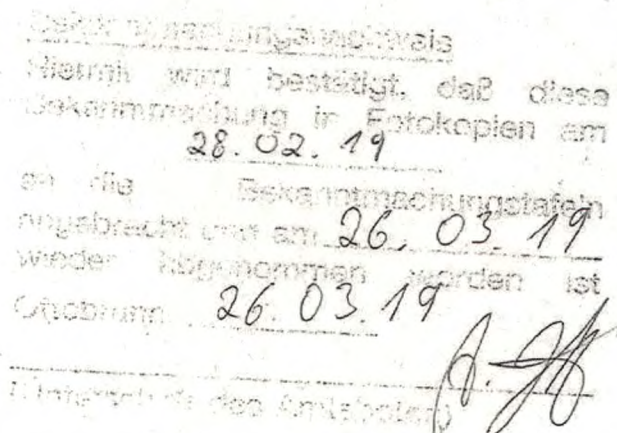 Bekanntmachungsnachweis
Hiermit wird bestätigt, daß diese
Bekanntmachung in Fotokopien am
28.02.19
an die Bekanntmachungstafeln
angebracht und am 26.03.19
wieder abgenommen worden ist
Ottobrunn 26.03.19
(Unterschrift des Amtsboten)